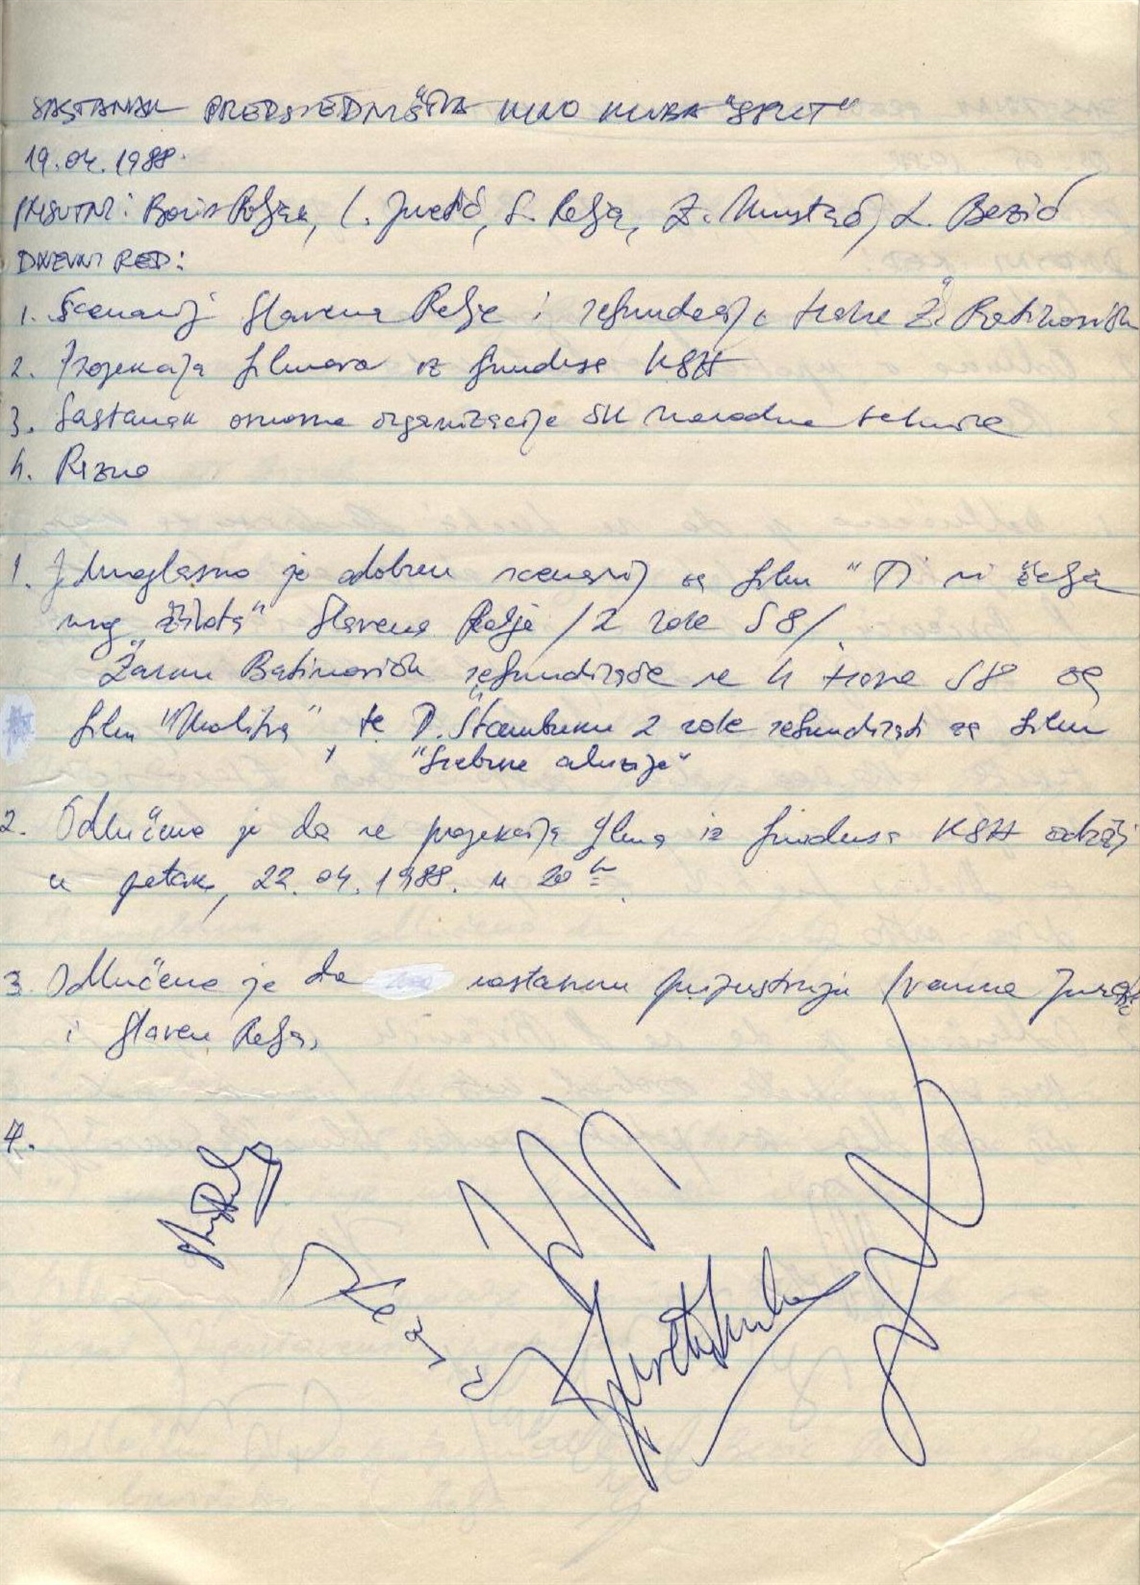 SASTANAK PREDSJEDNIŠTVA KINO KLUBA "SPLIT"
19.04.1988.
PRISUTNI: Boris Poljak, I. Juretić, S. Relja, Z. Mustać, L. Bezić
DNEVNI RED:
1. Scenarij Slavena Relje i refundacija trake Ž. Batinovića
2. Projekcija filmova iz fundusa KSH
3. Sastanak osnovne organizacije SK Narodne tehnike
4. Razno
1. Jednoglasno je odobren scenarij za film "Ti si želja
mog života" Slavena Relje /2 role S8/.
Žarku Batinoviću refundiraće se 4 trake S8 za
film "Molitva", te D. Štambuku 2 role refundirati za film
"Srebrne aluzije"
2. Odlučeno je da se projekcija filma iz fundusa KSH održi
u petak, 22.04.1988. u 20 h.
3. Odlučeno je da sastanku prisustvuju Ivanka
i Slaven Relja.
4.